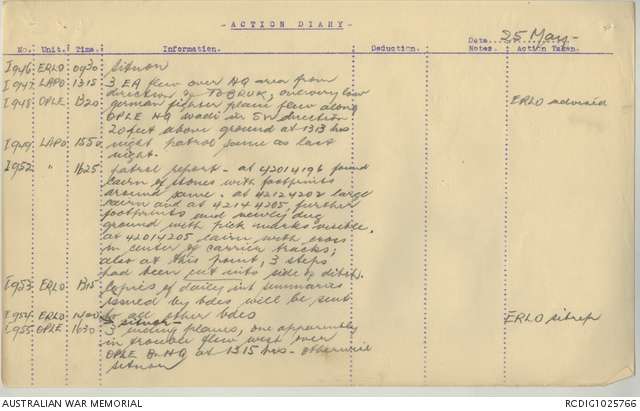 - ACTION DIARY -
Date 25 May -
No. Unit. Time. Information. Deduction. Notes. Action Taken.
I946 ERLO 0930 Sitnor
I947 LAPO 1315 3 EA flew over HQ area from
direction of TOBRUK, one very low
I948 OPLE 1320 German fighter plane flew along ERLO advised
OPLE HQ wadi in SW direction
20 feet above ground at 1313 hrs
I949 LAPO 1550 night patrol same as last
night.
I952 " 1625 patrol report - at 42014196 found
cairn of stones with footprints
around same. at 42124202 large
cairn and at 42144205 further
footprints and newly dug
ground with pick marks visible.
at 42014205 cairn with cross
in center of carrier tracks;
also at this point, 3 steps
had been cut into side of ditch.
I953 ERLO 1315 Copies of daily int summaries
issued by bdes will be sent
to all other bdes
I954 ERLO 1400 ERLO sitrep
I955 OPLE 1630 3 enemy planes, one apparently
in trouble flew west over
OPLE Bn HQ at 1315 hrs - otherwise
sitnor
AUSTRALIAN WAR MEMORIAL
RCDIG1025766